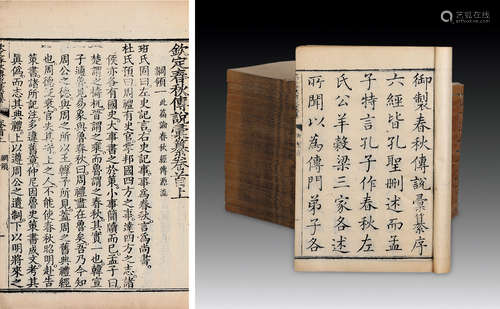 欽定春秋傳說彙纂卷首上
綱領一 此篇論春秋經傳源流
班氏固曰左史記言右史記事事為春秋言為尚書
杜氏預曰周禮有史官掌邦國四方之事達四方之志諸
侯亦各有國史大事書之於策小事簡牘而已孟子曰
楚謂之檮杌晉謂之乘而魯謂之春秋其實一也韓宣
子適魯見易象與魯春秋曰周禮盡在魯矣吾乃今知
周公之德與周之所以王韓子所見蓋周之舊典禮經
也周德既衰官失其守上之人不能使春秋昭明赴告
策書諸所記注多違舊章仲尼因魯史策書成文考其
真偽而志其典禮上以遵周公之遺制下以明將來之
綱領
御製春秋傳說彙纂序
六經皆孔聖刪述而孟
子特言孔子作春秋左
氏公羊穀梁三家各述
所聞以為傳門弟子各
艺狐在线
artfoxlive.com